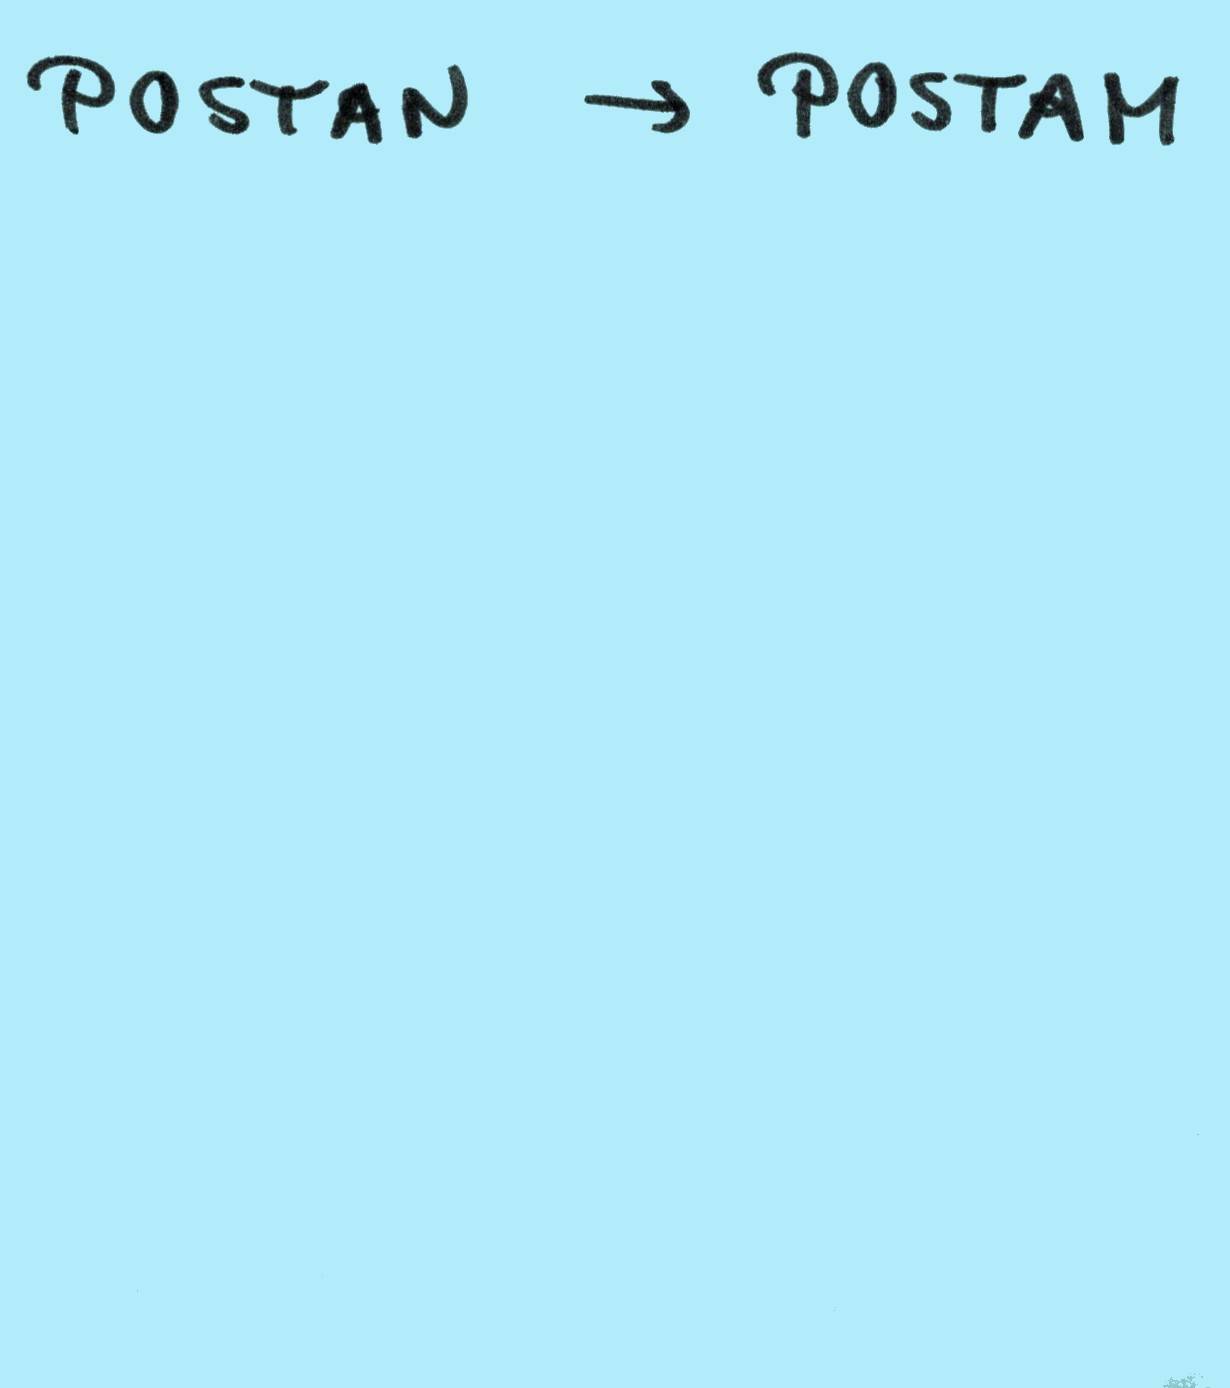 POSTAN → POSTAM